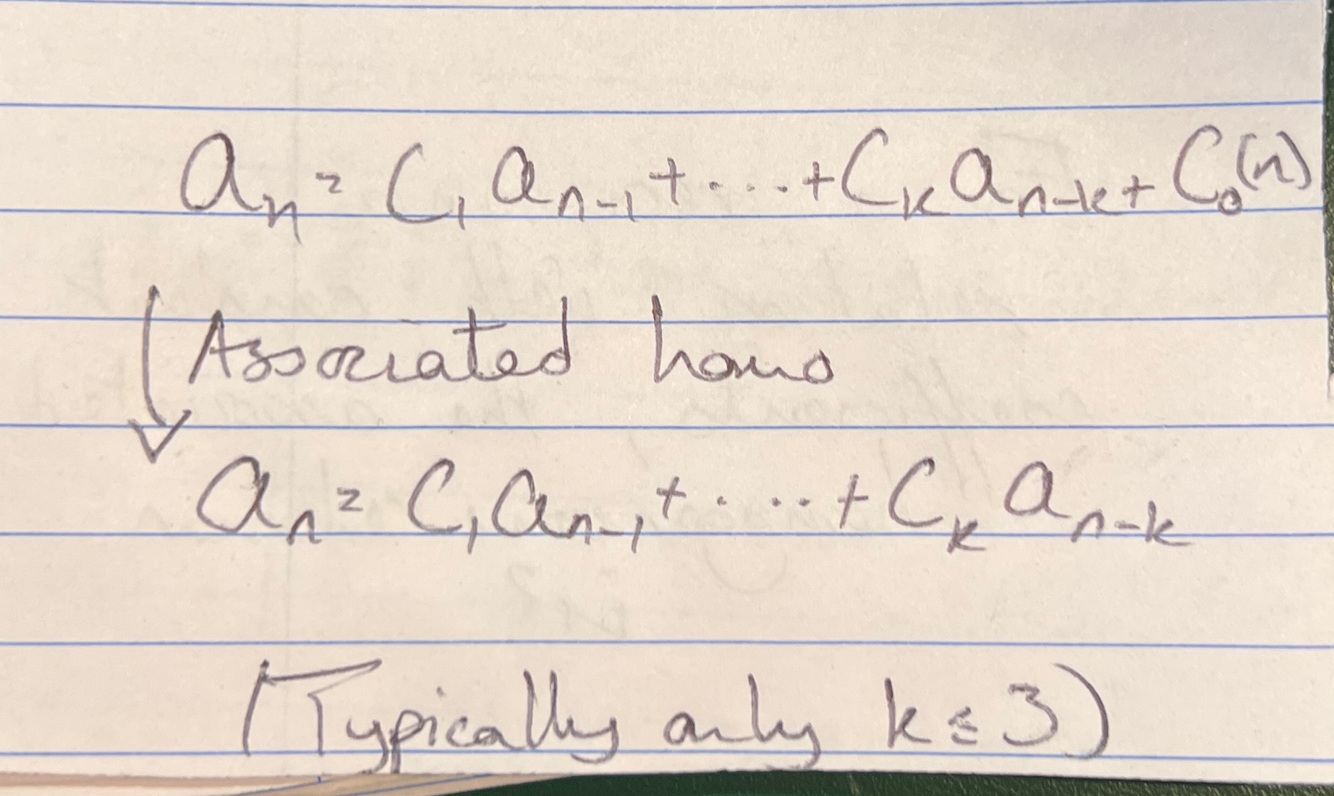 aₙ = C₁ aₙ₋₁ + ... + Cₖ aₙ₋ₖ + C₀(n)
↓ Associated homo
aₙ = C₁ aₙ₋₁ + .... + Cₖ aₙ₋ₖ
(Typically only k ≤ 3)